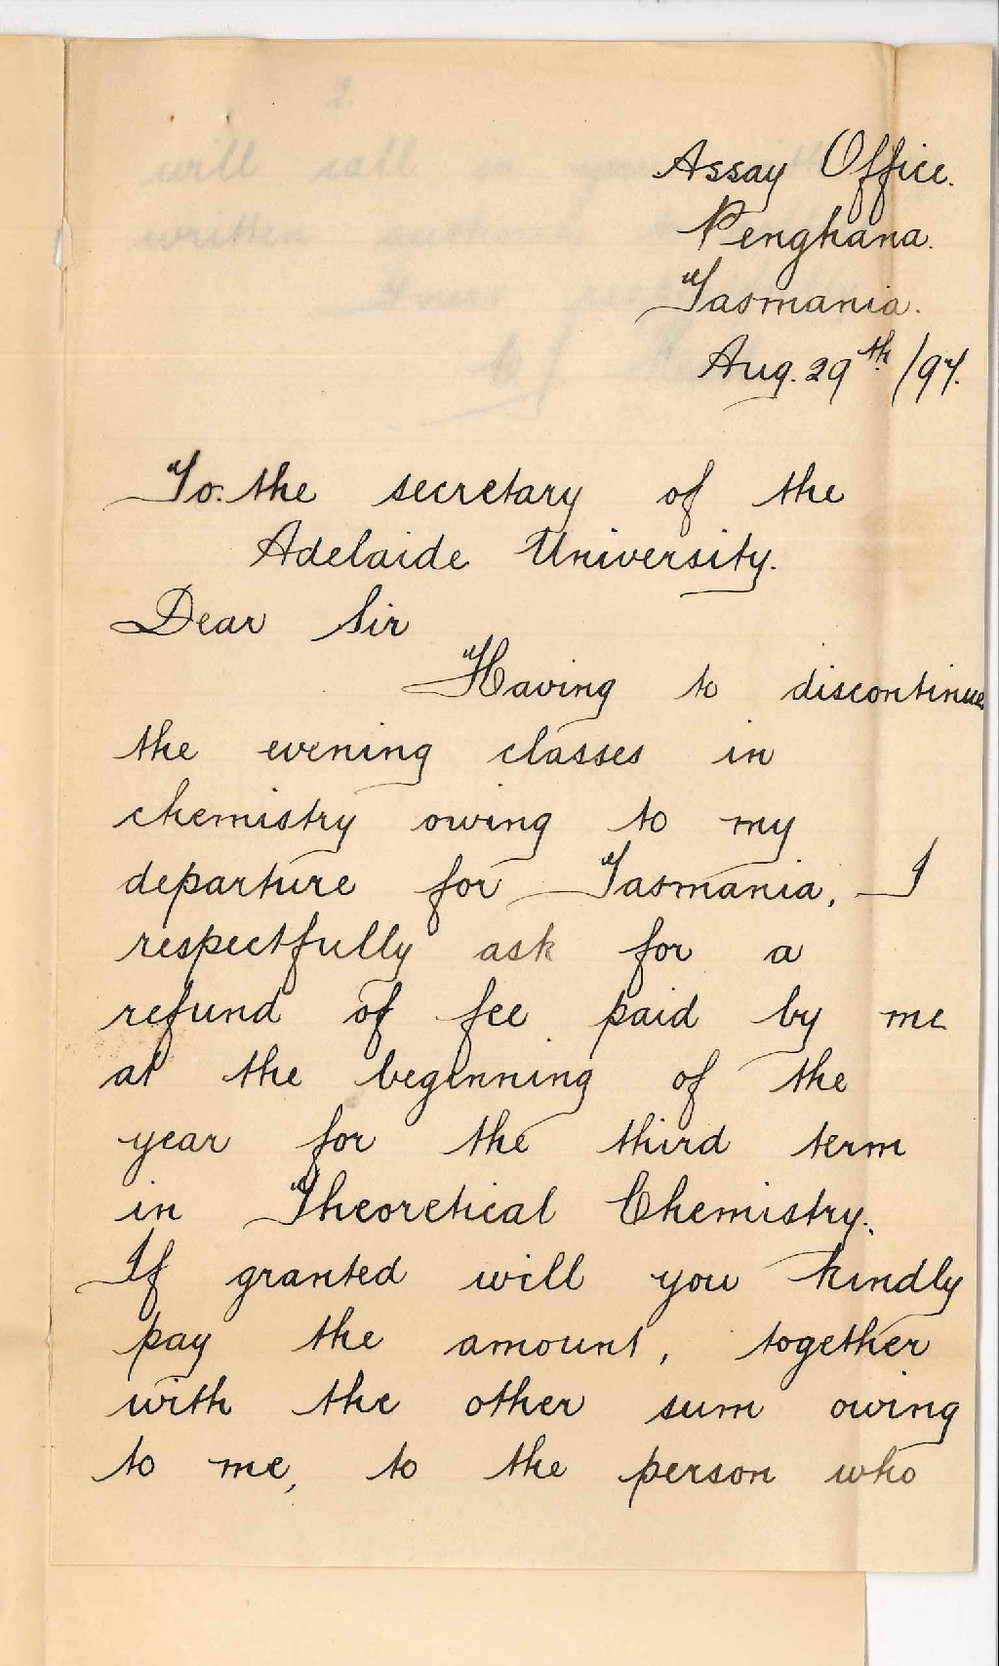 Assay Office.
Penghana.
Tasmania.
Aug. 29th /97.
To. the secretary of the
Adelaide University.
Dear Sir
Having to discontinue
the evening classes in
chemistry owing to my
departure for Tasmania, I
respectfully ask for a
refund of fee paid by me
at the beginning of the
year for the third term
in Theoretical Chemistry.
If granted will you kindly
pay the amount, together
with the other sum owing
to me, to the person who